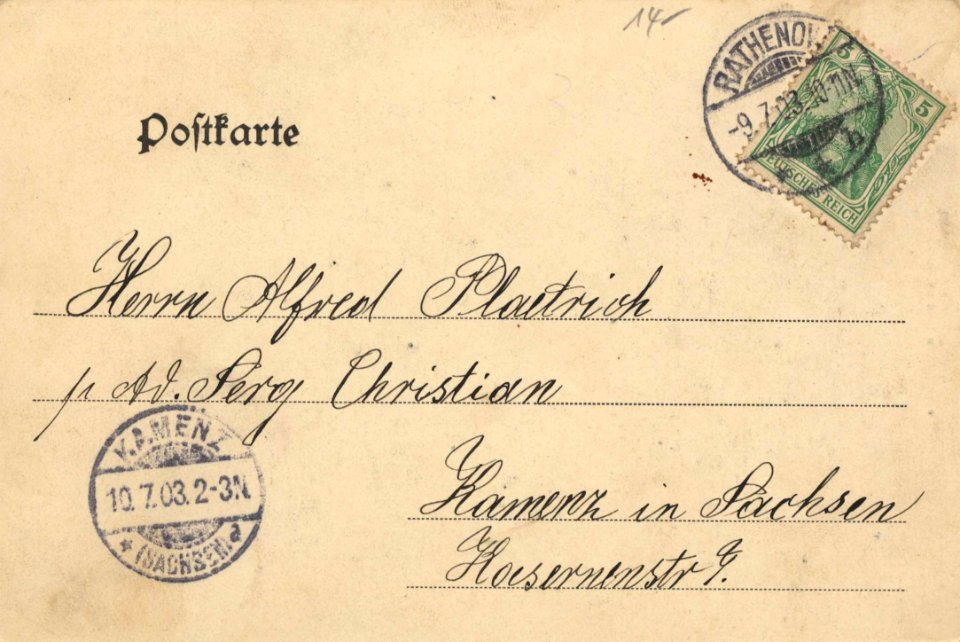 14
Postkarte
RATHENOW
-9.7.03.10-11N
* 1 h
5
5
DEUTSCHES REICH
Herrn Alfred Plaetrich
p. Ad. Serg Christian
Kamenz in Sachsen
Kasernenstr 9.
KAMENZ
10.7.03.2-3N
* (SACHSEN) a